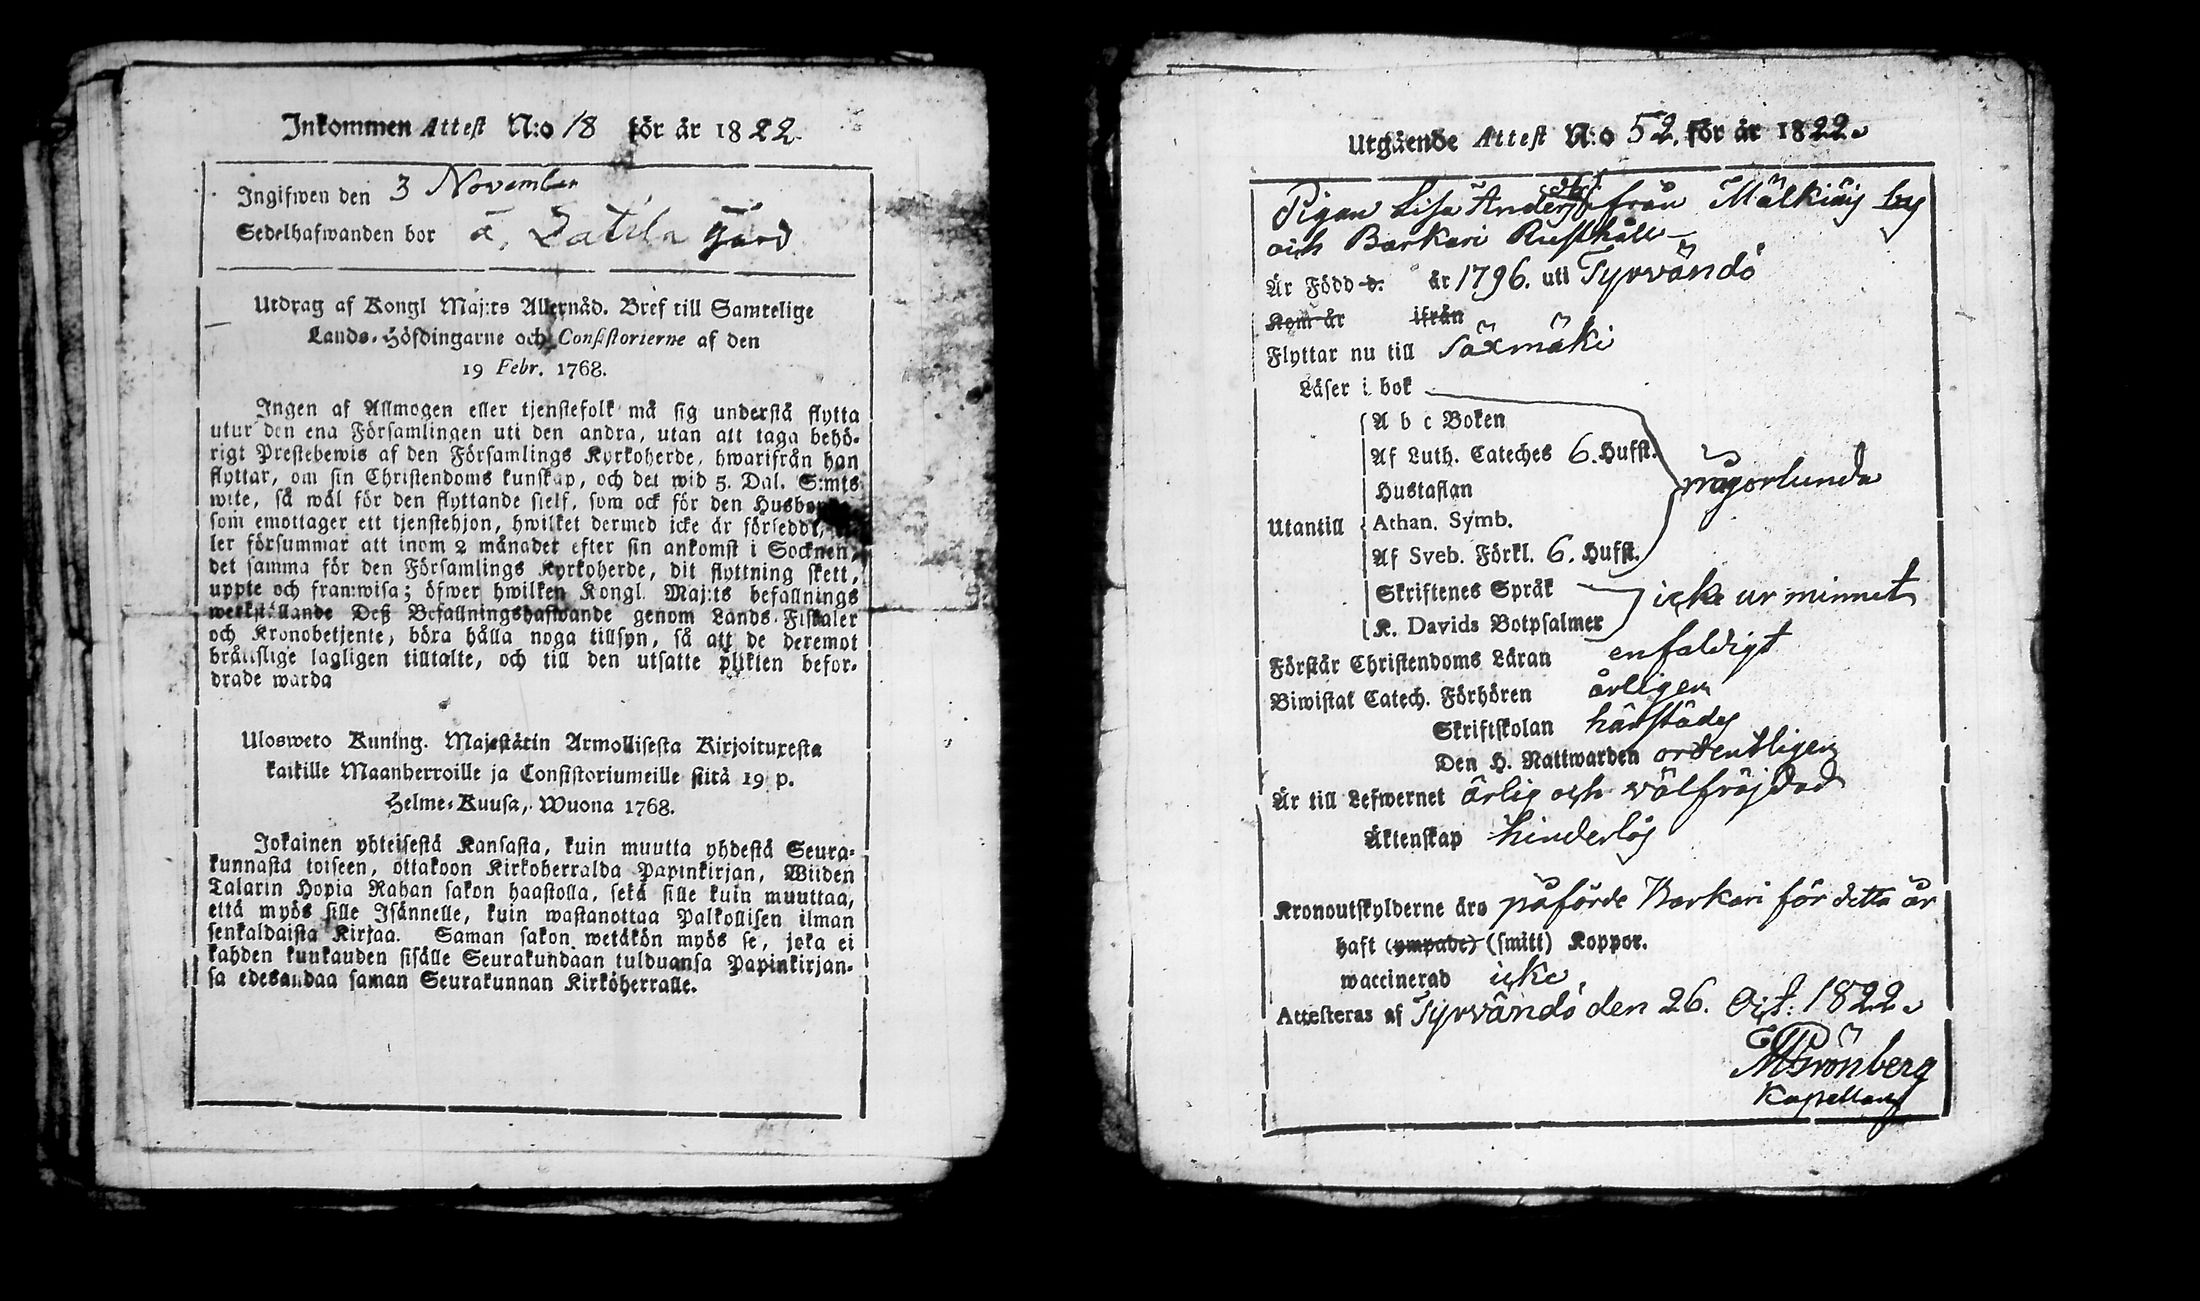 Inkommen Attest N:o 18 för år 1822.
Ingifwen den 3 November
Sedelhafwanden bor å, Gård
Utdrag af Kongl Maj:ts Allernåd. Bref till Samtelige
Lands-Höfdingarne och Consistorierne af den
19 Febr. 1768.
Ingen af Allmogen eller tjenstefolk må sig understå flytta
utur den ena Församlingen uti den andra, utan att taga behö-
rigt Prestebewis af den Församlings Kyrkoherde, hwarifrån han
flyttar, om sin Christendoms kunskap, och det wid 5. Dal. S:mts
wite, så wäl för den flyttande sielf, som ock för den
som emottager ett tjenstehjon, hwilket dermed icke är försedt,
ler försummar att inom 2 månader efter sin ankomst i Socknen,
det samma för den Församlings Kyrkoherde, dit flyttning skett,
uppte och framwisa; öfwer hwilken Kongl. Maj:ts befallnings
werkställande Deß Befallningshafwande genom Lands-Fiskaler
och Kronobetjente, böra hålla noga tillsyn, så att de deremot
bråttslige lagligen tilltalte, och till den utsatte plikten befor-
drade warda
Ulosweto Kuning. Majestätin Armollisesta Kirjoituxesta
kaikille Maanherroille ja Consistoriumeille siitä 19 p.
Helme-Kuusa, Wuona 1768.
Jokainen yhteisestä Kansasta, kuin muutta yhdestä Seura-
kunnasta toiseen, ottakoon Kirkoherralda Papinkirjan, Wiiden
Talarin Hopia Rahan sakon haastolla, sekä sille kuin muuttaa,
että myös sille Isännelle, kuin wastanottaa Palkollisen ilman
senkaldaista Kirjaa. Saman sakon wetäkön myös se, joka ei
kahden kuukauden sisälle Seurakundaan tulduansa Papinkirjan-
sa edesandaa saman Seurakunnan Kirköherralle.
Utgående Attest N:o 52. för år 1822.
Pigan Lisa Andersdr från Mälkiäis by
och Barkari Rusthåll
Är Född d. år 1796. uti Tyrvändö
Kom år ifrån
Flyttar nu till Säxmäki
Läser i bok
A b c Boken
Af Luth. Cateches 6. Hufst.
Hustaflan
någorlunda
Utantill Athan. Symb.
Af Sveb. Förkl. 6. Hufst.
Skriftenes Språk
icke ur minnet
K. Davids Botpsalmer
Förstår Christendoms Läran enfaldigt
Biwistat Catech. Förhören årligen
Skriftskolan härstädes
Den H. Nattwarden ordentligen
Är till Lefwernet ärlig och wälfräjdad
Äktenskap hinderlös
Kronoutskylderne äro påförde Barkari för detta år
haft (ympade) (smitt) Koppor.
waccinerad icke
Attesteras af Tyrvändö den 26. Oct: 1822.
Grönberg
Kapellan